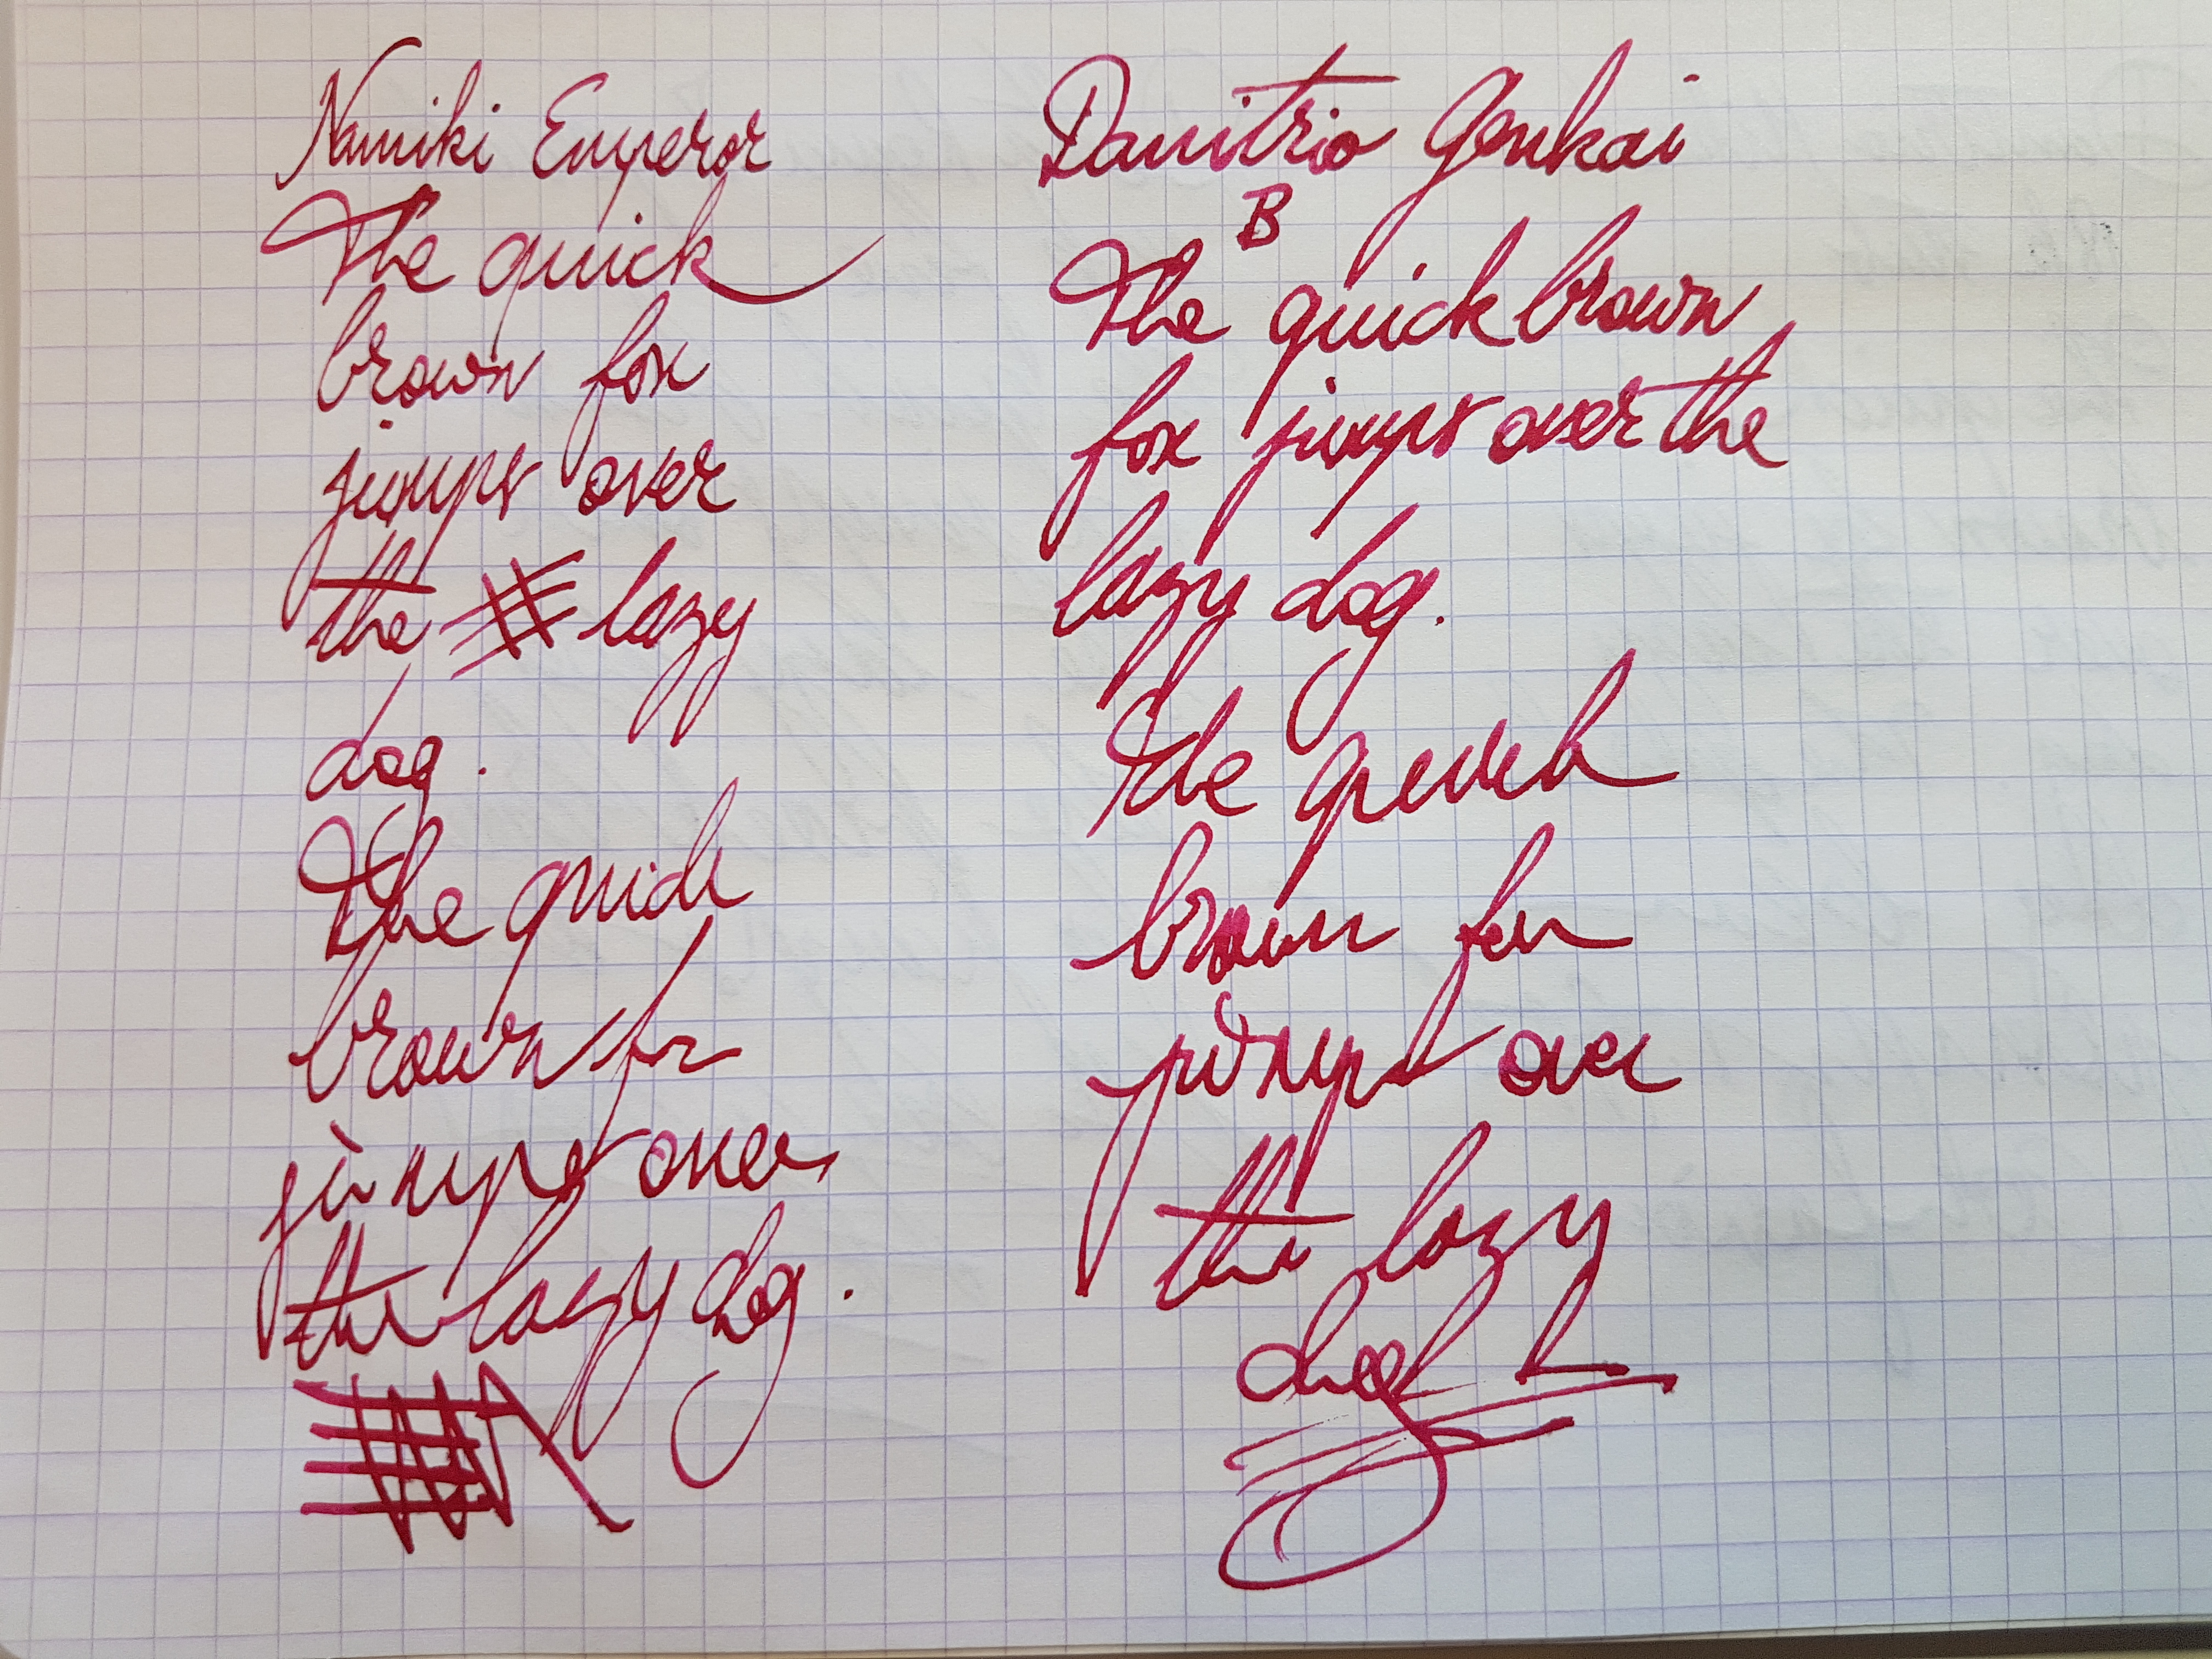 Namiki Emperor
The quick
brown fox
jumps over
the # lazy
dog.
The quick
brown fox
jumps over
the lazy dog.
Danitrio Genkai
B
The quick brown
fox jumps over the
lazy dog.
The quick
brown fox
jumps over
the lazy
dog